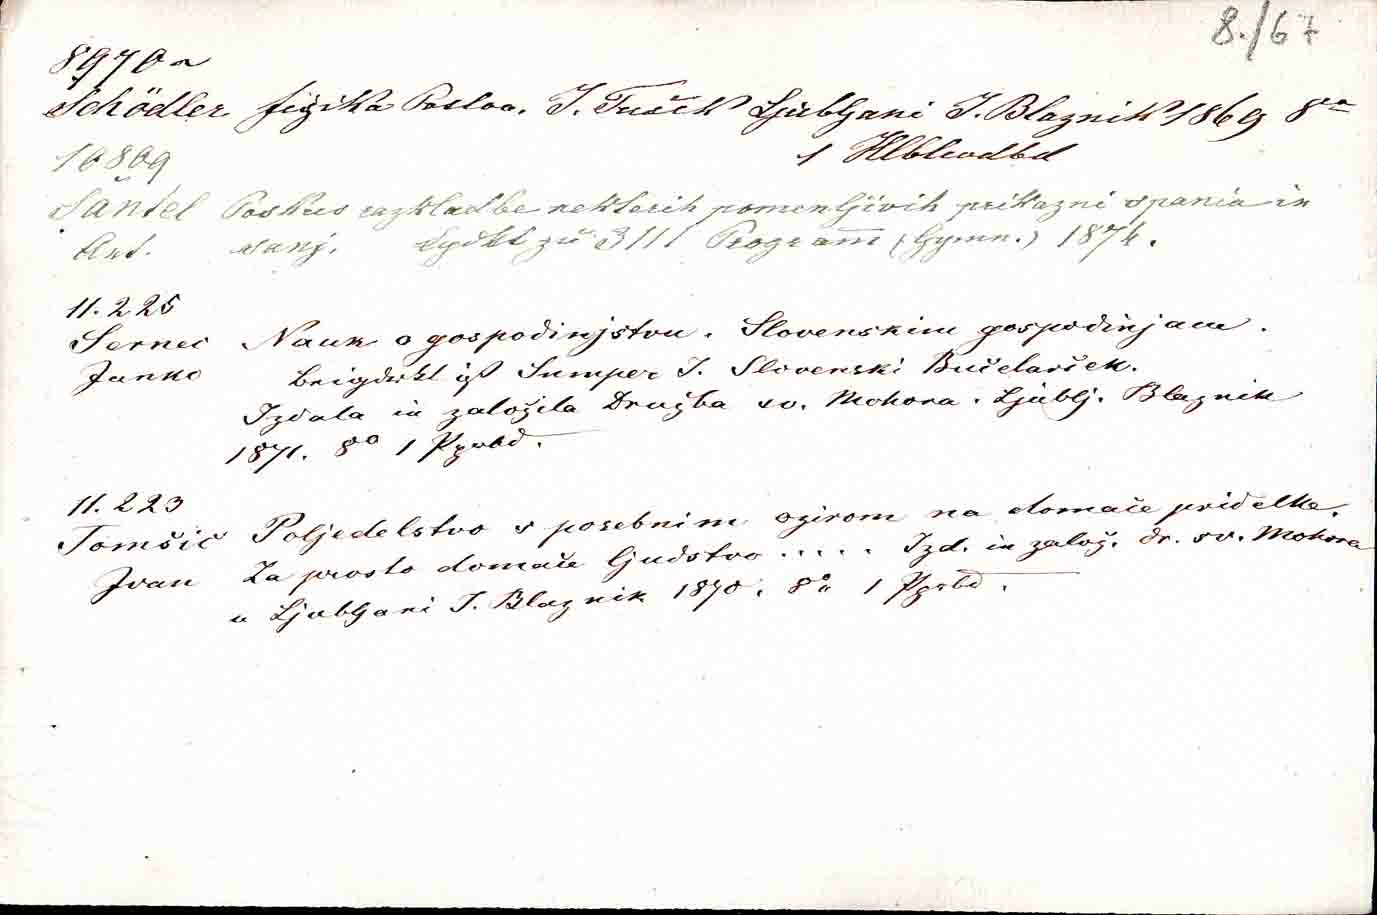 8./67
8970a
Schödler fizika Poslov. I. Tušek Ljubljani J. Blaznik 1869 8vo
1 Hlblwdbd
10809
Šantel Poskus razkladbe nekterih pomenljivih prikazni spania in
Ant. sanj. zu Programm (Gymn.) 1874.
11.225
Sernec Nauk o gospodinjstvu. Slovenskim gospodinjam.
Janko ist Sumper J. Slovenski Bučelarček.
Izdala in založila Družba sv. Mohora. Ljublj. Blaznik
1871. 8o 1 Ppbd.
11.223
Tomšič Poljedelstvo s posebnim ozirom na domače pridelke.
Ivan Za prosto domače ljudstvo ..... Izd. in založ. dr. sv. Mohora
u Ljubljani J. Blaznik 1870. 8o 1 Ppbd.